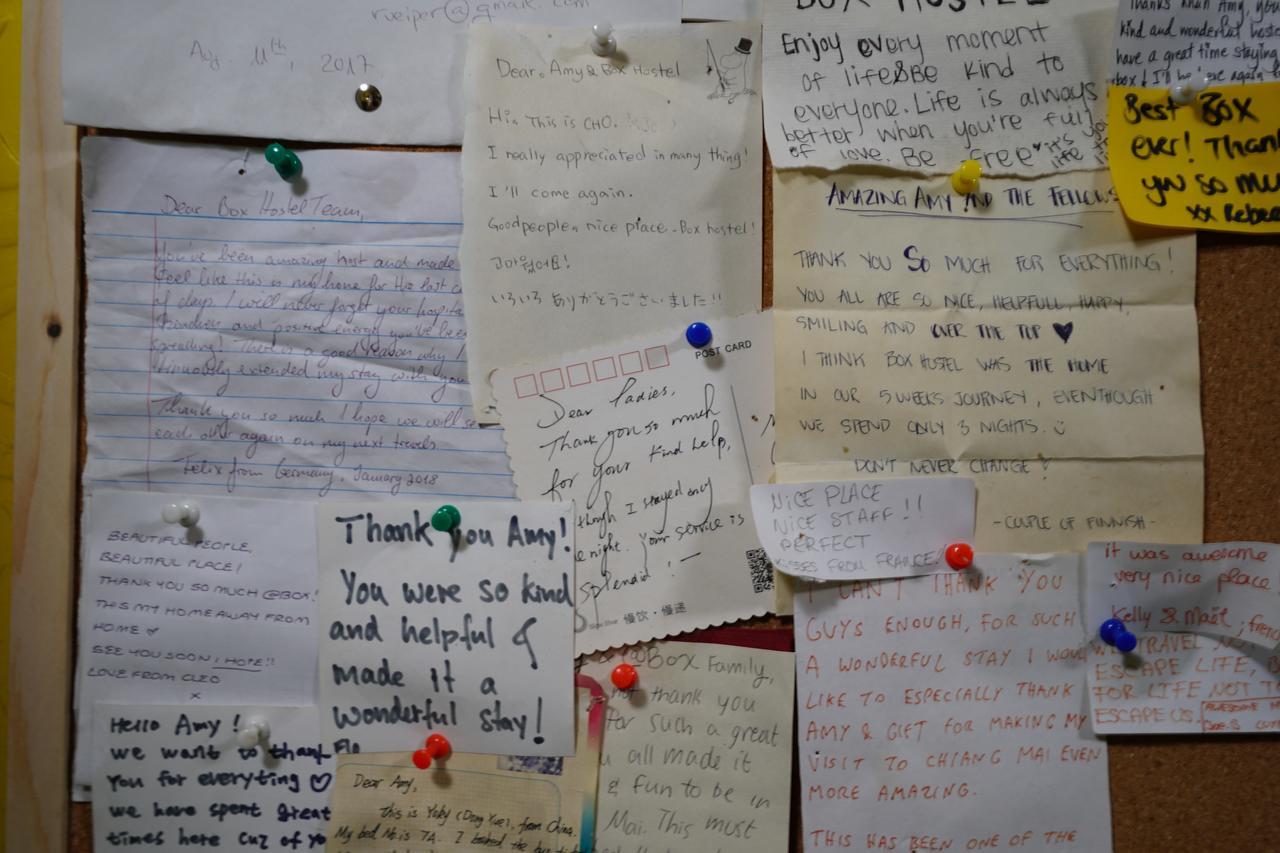 rueiper@gmail.com
Ag. 11th, 2017
Dear Box Hostel Team,
You've been amazing host and made
feel like this is my home for the last c
of days. I will never forget your hospita
kindness and positive energy you've bee
spreading! There is a good reason why I
extended my stay with you
Thank you so much I hope we will se
each other again on my next travels.
Felix from Germany, January 2018
Dear. Amy & Box Hostel
Hi. This is CHO.
I really appreciated in many thing!
I'll come again.
Good people, nice place - Box hostel!
고마웠어요!
いろいろ ありがとうございました!!
BOX HOSTEL
Enjoy every moment
of life & Be kind to
everyone. Life is always
better when you're full
of love. Be Free it's
life
Thanks Khun Amy, you
kind and wonderful hoste
have a great time staying
box! I'll be here again
Best Box
ever! Than
you so mu
xx Rebe
AMAZING AMY AND THE FELLOWS
THANK YOU SO MUCH FOR EVERYTHING!
YOU ALL ARE SO NICE, HELPFULL, HAPPY,
SMILING AND OVER THE TOP ♥
I THINK BOX HOSTEL WAS THE HOME
IN OUR 5 WEEKS JOURNEY, EVENTHOUGH
WE SPEND ONLY 3 NIGHTS. ü
DON'T NEVER CHANGE ♡
- COUPLE OF FINNISH -
POST CARD
Dear Ladies,
Thank you so much
for your kind help,
though I stayed only
e night. Your service is
splendid! —
慢饮·慢递
NICE PLACE
NICE STAFF!!
PERFECT
KISSES FROM FRANCE!
BEAUTIFUL PEOPLE,
BEAUTIFUL PLACE!
THANK YOU SO MUCH @BOX!
THIS MY HOME AWAY FROM
HOME ♡
SEE YOU SOON, I HOPE!!
LOVE FROM CLEO
x
Thank you Amy!
You were so kind
and helpful &
made it a
wonderful stay!
Flo
Hello Amy!
we want to thank
You for everyting ♡
we have spent great
times here cuz of yo
Dear Amy,
This is Yoky (Dong Yue), from China.
My bed No is 7A. I booked the bus
Box Family,
not thank you
for such a great
u all made it
& fun to be in
Mai. This must
I CAN'T THANK YOU
GUYS ENOUGH, FOR SUCH
A WONDERFUL STAY I WOUL
LIKE TO ESPECIALLY THANK
AMY & GIFT FOR MAKING MY
VISIT TO CHIANG MAI EVEN
MORE AMAZING.
THIS HAS BEEN ONE OF THE
it was awesome
very nice place
Kelly & Maït, frenc
WE TRAVEL NOT
ESCAPE LIFE,
FOR LIFE NOT TO
ESCAPE US.
AWESOME